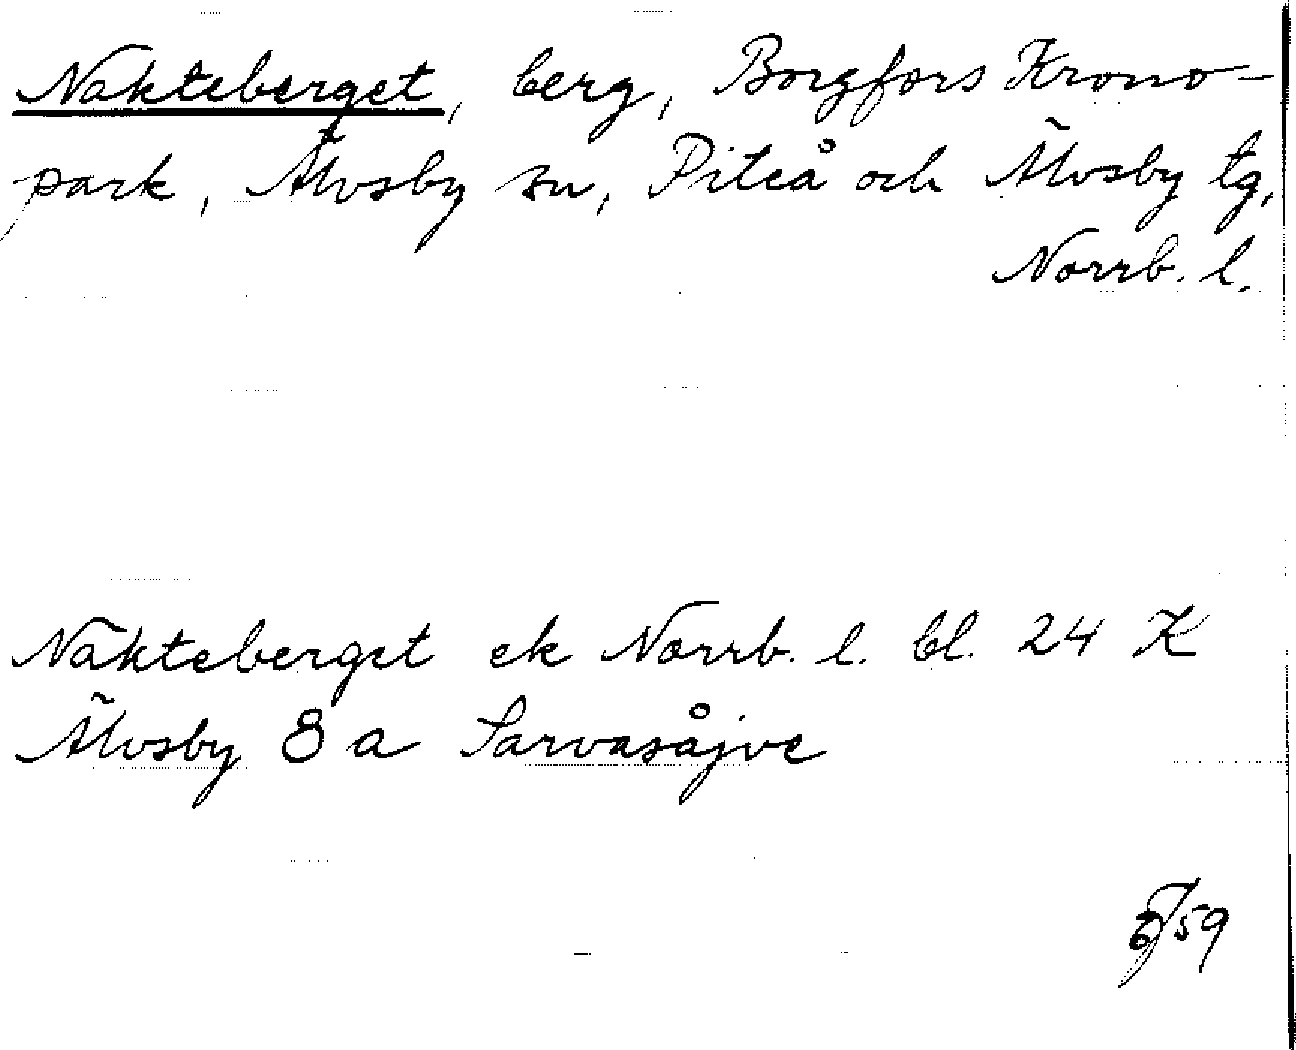 Nakteberget, berg, Borgfors Krono-
park, Älvsby sn, Piteå och Älvsby tg,
Norrb. l.
Näkteberget ek Norrb. l. bl. 24 K
Älvsby 8 a Sarvasåjve
59